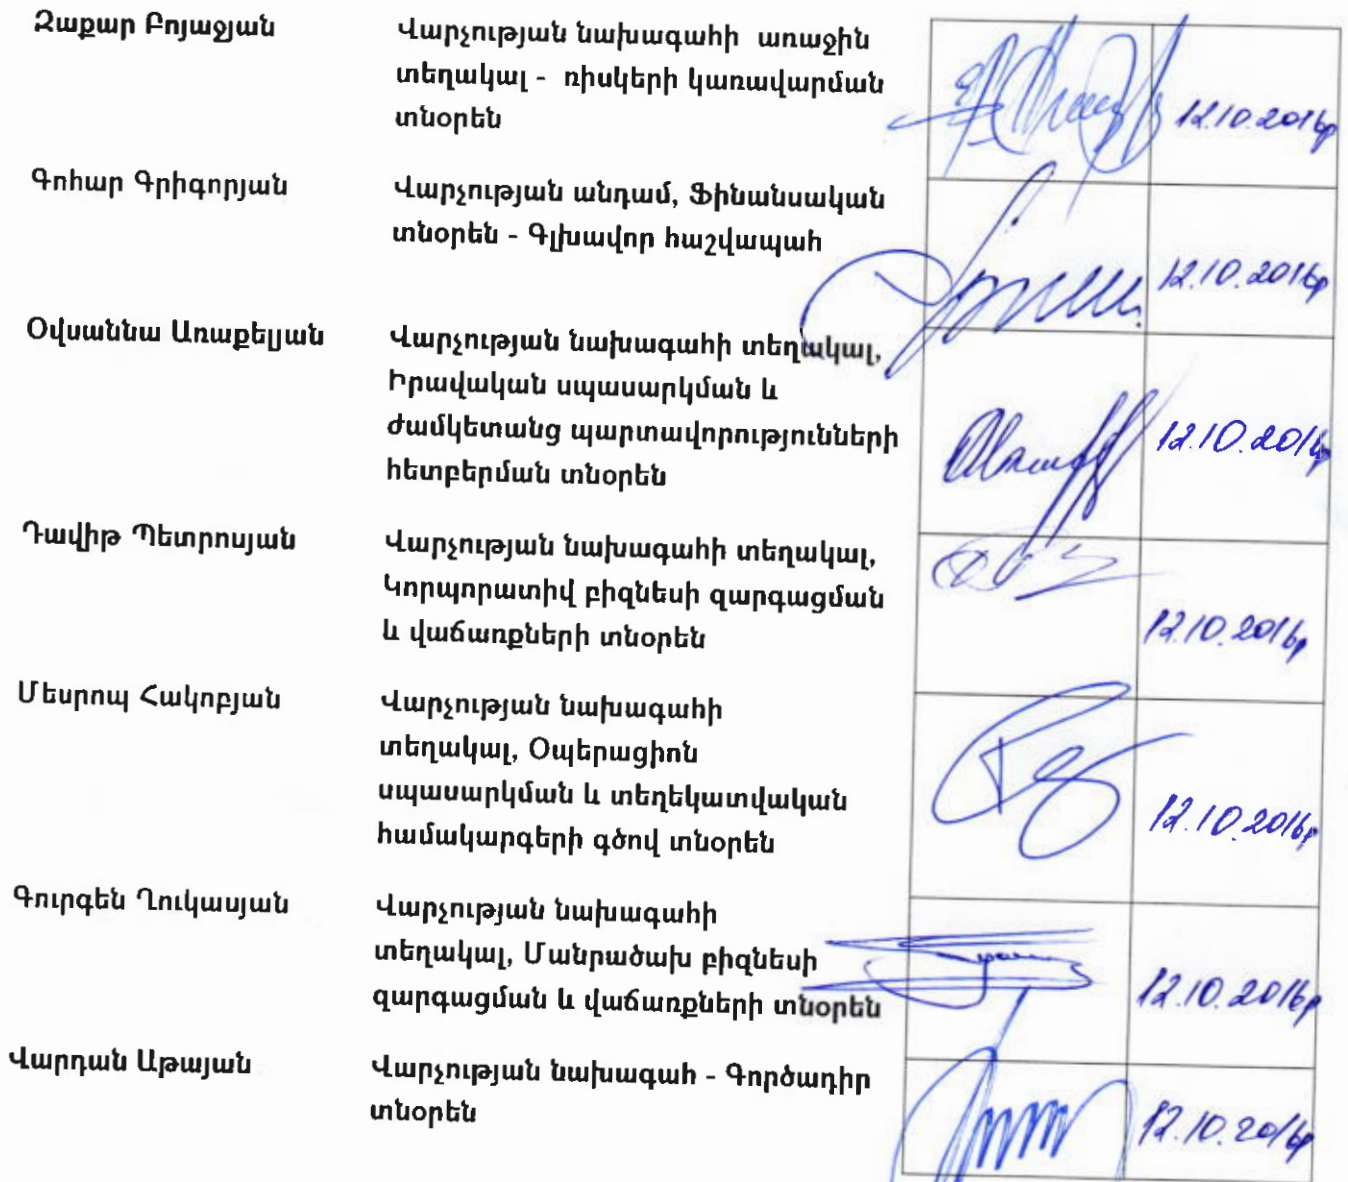 Զաքար Բոյաջյան
Վարչության նախագահի առաջին
տեղակալ - ռիսկերի կառավարման
տնօրեն
12.10.2016թ
Գոհար Գրիգորյան
Վարչության անդամ, Ֆինանսական
տնօրեն - Գլխավոր հաշվապահ
12.10.2016թ
Օվսաննա Առաքելյան
Վարչության նախագահի տեղակալ,
Իրավական սպասարկման և
ժամկետանց պարտավորությունների
հետբերման տնօրեն
12.10.2016թ
Դավիթ Պետրոսյան
Վարչության նախագահի տեղակալ,
Կորպորատիվ բիզնեսի զարգացման
և վաճառքների տնօրեն
12.10.2016թ
Մեսրոպ Հակոբյան
Վարչության նախագահի
տեղակալ, Օպերացիոն
սպասարկման և տեղեկատվական
համակարգերի գծով տնօրեն
12.10.2016թ
Գուրգեն Ղուկասյան
Վարչության նախագահի
տեղակալ, Մանրածախ բիզնեսի
զարգացման և վաճառքների տնօրեն
12.10.2016թ
Վարդան Աթայան
Վարչության նախագահ - Գործադիր
տնօրեն
12.10.2016թ